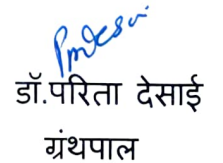 डॉ.परिता देसाई
ग्रंथपाल